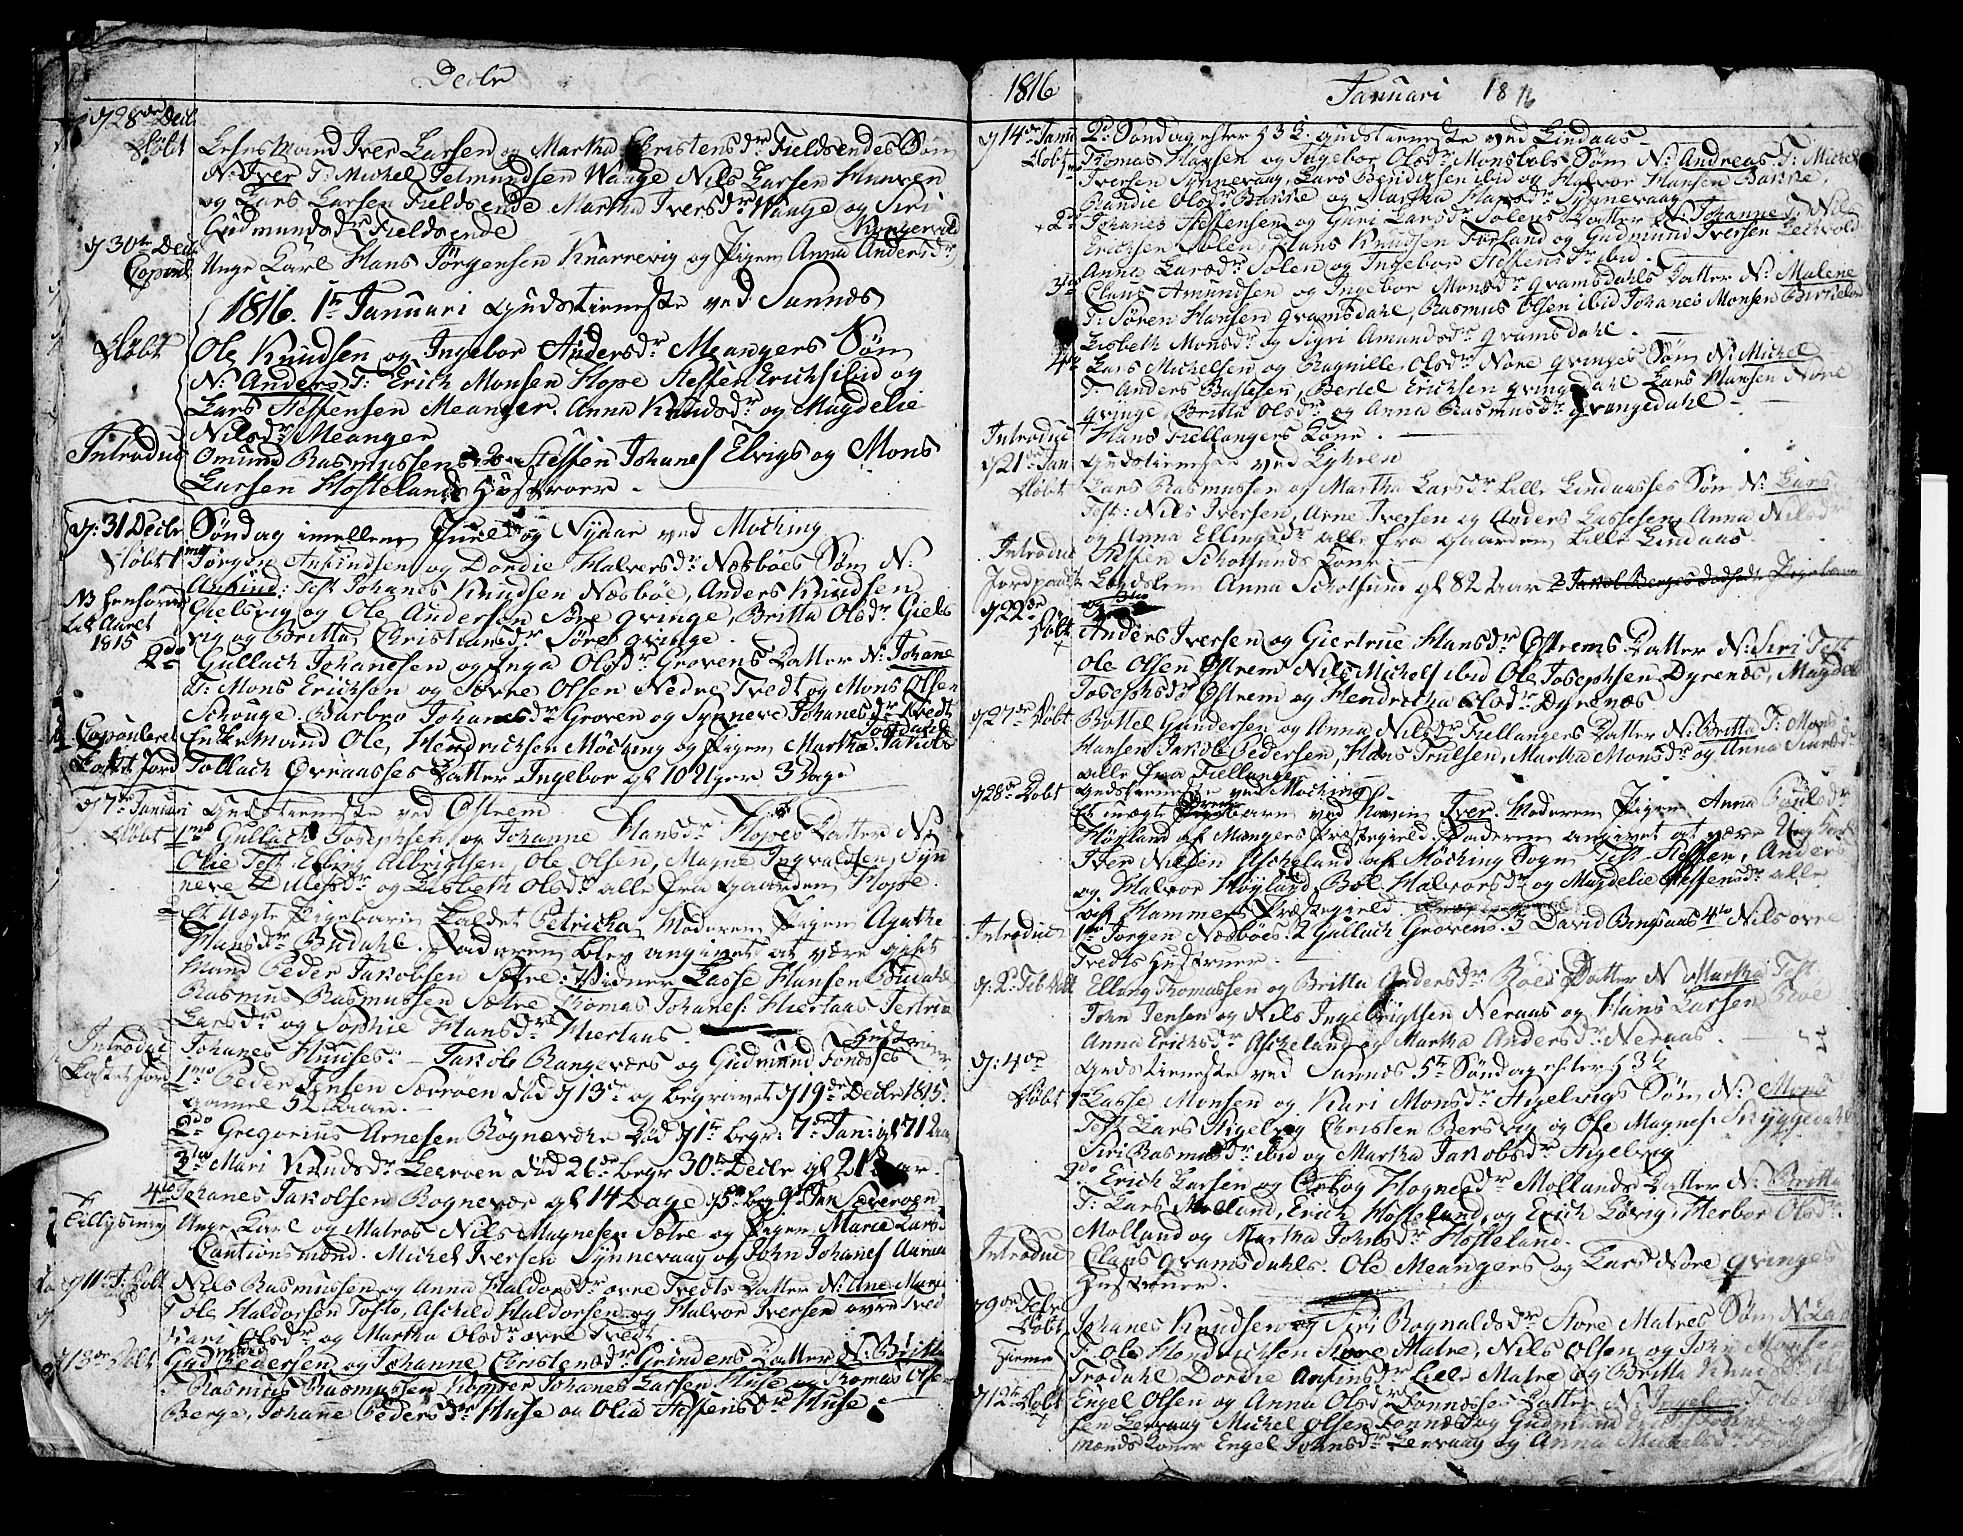 Decbr
d 28de Decb.
Døbt
Lehnsmand Iver Larsen og Martha Christensdr Fieldsendes Søn
N: Iver T: Michel Helmundsen Waage Nils Larsen Hunven
og Lars Larsen Fieldsende Martha Iversdr Waage og Siri
Gudmundsdr Fieldsende
d 30te Decb
Copul
Unge Karl Hans Jørgensen Knarrevig og Pigen Anna Andersdr
Kongevold
1816. 1te Januari Gudstieneste ved Sannes
Døbt
Ole Knudsen og Ingebor Andersdr Meangers Søn
N: Anders T: Erich Monsen Hope Steffen Erichs ibid og
Lars Steffensen Meanger. Anna Knudsdr og Magdelie
Nilsdr Meanger
Introduc
Omund Rasmussens Steffen Johanes Elvigs og Mons
Larsen Hostelands Hustruer.
d: 31 Decbr
Søndag imellem Juul og Nyaar ved Mocking
Døbt 1mo
Jørgen Ankindsen og Dordie Halversdr Næsbøes Søn N:
Ankind: Test Johanes Knudsen Næsbøe, Anders Knudsen
NB henføres
til Aaret
1815
Gielsvig og Ole Anderson Søre Qvinge, Britta Olsdr Giels
vig og Britta Christiansdr Søre Qvinge.
2do
Gullach Johanesen og Inga Olsdr Grovens Datter N: Johane
T: Mons Erichsen og Sevre Olsen Nedre Tvedt og Mons Olsen
Schouge. Barbro Johanesdr Groven og Synneve Johanesdr Tvedt
Copuleret
Enkemand Ole Hendrichsen Mocking og Pigen Martha Jakobs
Kastet Jord
Tollach Øvraasses Datter Ingebor gl 10 Uger 3 Dage
d 7de Januari
Gudstieneste ved Østrem
Døbt
1mo Gullach Josephsen og Johanne Hansdr Hopes Datter N:
Olie Test Elling Albrigtsen, Ole Olsen, Magne Ingvaldsen, Syn
neve Dulesdr og Lisbeth Olsdr alle fra Gaarden Hope.
2
Et Uægte Pigebarn Kaldet Petricka Moderen Pigen Agathe
Hansdr Budahl. Faderen blev angivet at være gift
Mand Peder Jakobsen Sætre: Vidner Lasse Hansen Budahl
Rasmus Rasmussen Sætre Thomas Johanes: Hiertaas Jertrue
Larsdr og Sophie Hansdr Hiertaas.
Introduc
Johanes Huuses: Jakob Rangevæers og Gudmund Fonnesses
Hustruer
Kastet Jord
1mo Peder Jensen Sævroen død d 13de og begravet d 19de Decbr 1815.
gamel 52 Aar.
2do Gregorius Arnesen Rognevær Død d 1te begr: 7de Jan: gl 71 Aar
3tio Mari Knudsdr Leeroen død 26de begr 30te Decbr gl 21 Aar.
4to Johanes Jakobsen Rognevær gl 14 Dage d 5te beg 9de Jan Sæveroen
Tillysning
Unge Karl og Matros Nils Magnesen Sætre og Pigen Marie Lars
Cautions mænd. Michel Iversen Synnevaag og John Johanes Aaraas
d 11te J: Døbt
Nils Rasmussen og Anna Haldorsdr øvre Tvedts Datter N: Ane Marie
T ole Haldorsen Toflo, Aschild Haldorsen og Halvor Iversen øvre Tved
Kari Olsdr og Martha Olsdr øvre Tvedt
d 13de Døbt
Gudmund Pedersen og Johanne Christensdr Grindens Datter N: Britta
T Rasmus Rasmussen Johanes Larsen Huse og Thomas Olse
Berge, Johanne Pedersdr Huse og Olia Steffensdr Huse.
1816
Januari 1816
d 14de Janu
2de Søndag efter H 3 K. Gudstieneste ved Lindaas
Døbt
1mo
Thomas Hansen og Ingebor Olsdr Monsbols Søn N: Andreas T: Michel
Iversen Synnevaag, Lars Bendixsen ibid og Halvor Hansen Bakke.
Randie Olsdr Bakke og Martha Hansdr Synnevaag
2do
Johanes Steffensen og Guri Larsdr Solens Datter N: Johanne T. Nils
Erichsen Solen, Hans Knudsen Forland og Gudmund Iversen Leervold
Anna Larsdr Solen og Ingebor Steffensdr ibid.
3tio
Claus Amundsen og Ingebor Monsdr Qvamsdahls Datter N: Malene
T: Søren Hansen Qvamsdahl, Rasmus Olsen ibid Johanes Monsen Birkeland
Lisbeth Monsdr og Sigri Amundsdr Qvamsdahl.
4to
Lars Michelsen og Ragnille Olsdr Nore Qvinges Søn N: Michel
T: Anders Baltesen, Bertel Erichsen Qvingedahl Lars Hansen Nore
Qvinge Britta Olsdr og Anna Rasmusdr Qvingedahl
Introduc
Hans Fiellangers Kone.
d 21de Jan
Gudstieneste ved Lyhren
Døbt
Lars Rasmussen og Martha Larsdr Lille Lindaasses Søn N: Lars
Test: Nils Iversen, Arne Iversen og Anders Lassesen Anna Nilsdr
og Anna Ellingsdr alle fra Gaarden Lille Lindaas.
Introduc
Steffen Schotsunds Kone
Jordpaak
Lægdslem Anna Schotsund gl 82 Aar
d 22de
Døbt
Anders Iversen og Giertrue Hansdr Østrems Datter N: Siri Test
Ole Olsen Østrem Nils Michels ibid Ole Josephsen Dyrenæs, Magdel
Josephsdr Østrem og Hendricha Olsdr Dyrenæs
d 27de Døbt
Bottel Gundersen og Anna Nilsdr Fiellangers Datter N: Britta T: Mons
Hansen Jakob Pedersen, Hans Trulsen, Martha Monsdr og Anna Iversdr
alle fra Fiellanger
d 28de Døbt
Gudstieneste ved Mocking
Et uægte Drengebarn ved Navn Iver. Moderen Pigen Anna Poulsdr
Høyland af Mangers Præstegield Faderen angivet at være Ung Karl
Iver Nilsen Ascheland af Mocking Sogn Test Steffen, Anders
og Halvor Høyland Boel Halvorsdr og Magdelie Steffensdr alle
af Hammers Præstegield.
Introduc
1te Jorgen Næsbøes. 2 Gullach Grovens. 3 David Bergsaas 4to Nils øvre
Tvedts Hustruer.
d: 2. Feb Døbt
Elling Thomassen og Britta Andersdr Roes Datter N Martha Test
John Jensen og Nils Ingebrigtsen Neraas og Hans Larsen Roe
Anna Erichsdr Ascheland og Martha Andersdr Neraas.
d: 4de
Gudstieneste ved Sannes 5te Søndag efter H 3 K
Døbt
1te Lasse Monsen og Kari Monsdr Stigelvigs Søn N: Mons
Test Lars Stigelvig Christen Bersvig og Ole Magnes: Tryggedahl
Siri Rasmusdr ibid og Martha Jakobsdr Stigelvig
2do Erich Larsen og Hognesdr Mollands Datter N: Britta
T: Lars Molland, Erich Hosteland, og Erich Løvig, Herbor Olsdr
Molland og Martha Johnsdr Hosteland.
Introduc
Claus Qvamsdahls. Ole Meangers og Lars Nore Qvinges
Hustruer.
d 9de Febr
Døbt
Hieme
Johanes Knudsen og Siri Rognaldsdr Store Matres Søn N: La
T. Ole Hendrichsen Store Matre, Nils Olsen og John Monsen
Trodahl Dordie Anfinsdr Lille Matre og Britta Knud
d 12te Døbt
Engel Olsen og Anna Olsdr Fonnesses Datter N: T Ole
sen Lervaag Michel Olsen Fonnes og Gudmund
mænds Koner Engel Johnsdr Lervaag og Anna Michelsdr